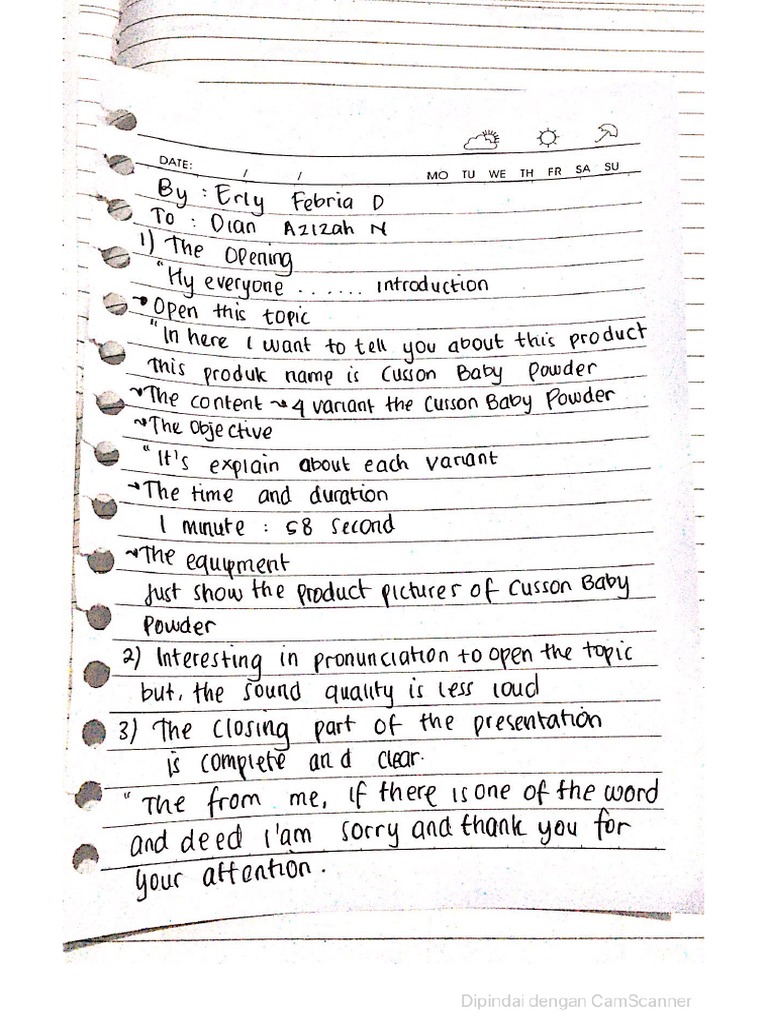 DATE: / /
MO TU WE TH FR SA SU
By : Erly Febria D
To : Dian Azizah N
1) The Opening
"Hy everyone ....... introduction
Open this topic
"In here I want to tell you about this product
this produk name is Cusson Baby Powder
The content → 4 variant the Cusson Baby Powder
The Objective
"It's explain about each variant
The time and duration
1 minute : 58 second
The equipment
Just show the product pictures of Cusson Baby
Powder
2) Interesting in pronunciation to open the topic
but, the sound quality is less loud
3) The closing part of the presentation
is complete and clear.
"The from me, if there is one of the word
and deed I'am sorry and thank you for
your attention.
Dipindai dengan CamScanner